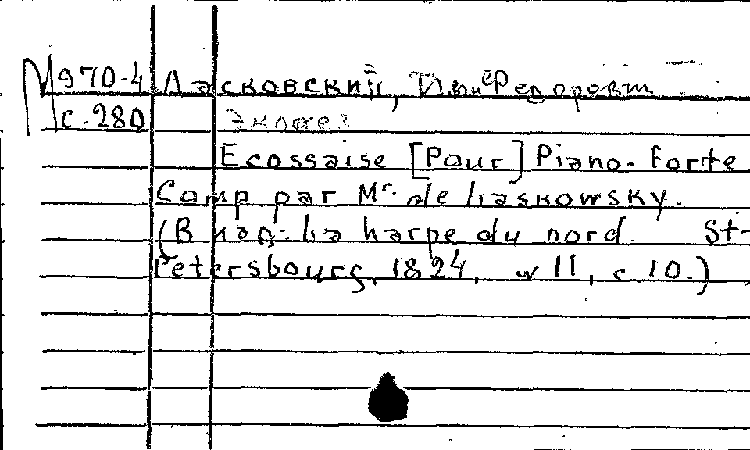 М970-4 Ласковский, Иван Федорович
с. 280 Экосез
Ecossaise [Pour] Piano-forte
Comp par Mr. de Laskowsky.
(В изд: La harpe du nord. St-
Petersbourg, 1824, № 11, с 10.)